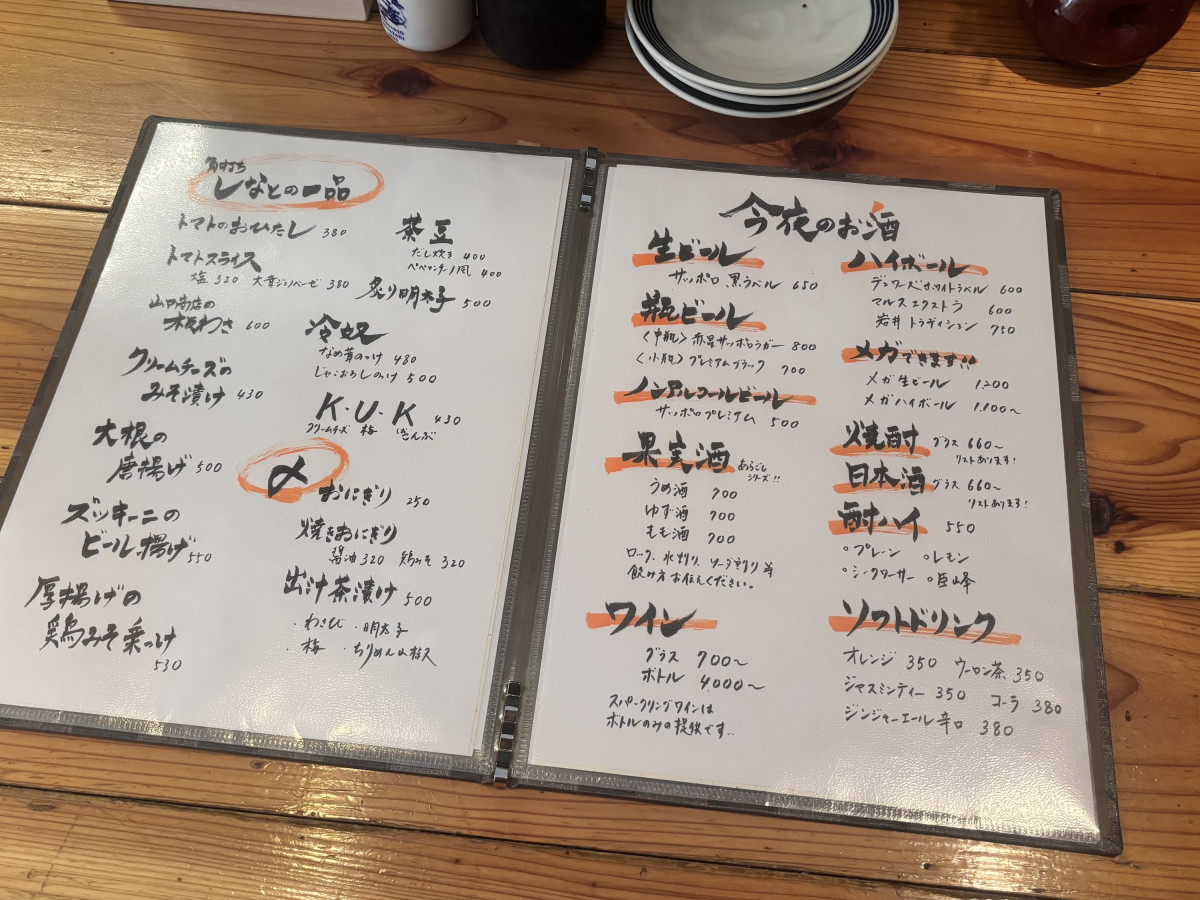 角打ち
しなとの一品
トマトのおひたし 380
トマトスライス
塩 320 大葉ジェノベーゼ 380
山口商店の
板わさ 600
クリームチーズの
みそ漬け 430
大根の
唐揚げ 500
ズッキーニの
ビール揚げ 550
厚揚げの
鶏みそ乗っけ
530
茶豆
だし炊き 400
ペペロンチーノ風 400
炙り明太子 500
冷奴
なめ茸のっけ 480
じゃこおろしのっけ 500
K・U・K 430
クリームチーズ 梅 きざみこんぶ
〆
おにぎり 250
焼きおにぎり
醤油 320 鶏みそ 320
出汁茶漬け 500
・わさび ・明太子
・梅 ・ちりめん山椒
今夜のお酒
生ビール
サッポロ 黒ラベル 650
瓶ビール
〈中瓶〉赤星サッポロラガー 800
〈小瓶〉プレミアムブラック 700
ノンアルコールビール
サッポロプレミアム 500
果実酒 あらごしシリーズ!!
うめ酒 700
ゆず酒 700
もも酒 700
ロック、水割り、ソーダ割り等
飲み方お伝えください。
ワイン
グラス 700〜
ボトル 4,000〜
スパークリングワインは
ボトルのみの提供です…
ハイボール
デュワーズホワイトラベル 600
マルスエクストラ 600
岩井トラディション 750
メガできます!!
メガ生ビール 1,200
メガハイボール 1,100〜
焼酎 グラス 660〜
リストあります!
日本酒 グラス 660〜
リストあります!
酎ハイ 550
○プレーン ○レモン
○シークワーサー ○巨峰
ソフトドリンク
オレンジ 350 ウーロン茶 350
ジャスミンティー 350 コーラ 380
ジンジャーエール辛口 380